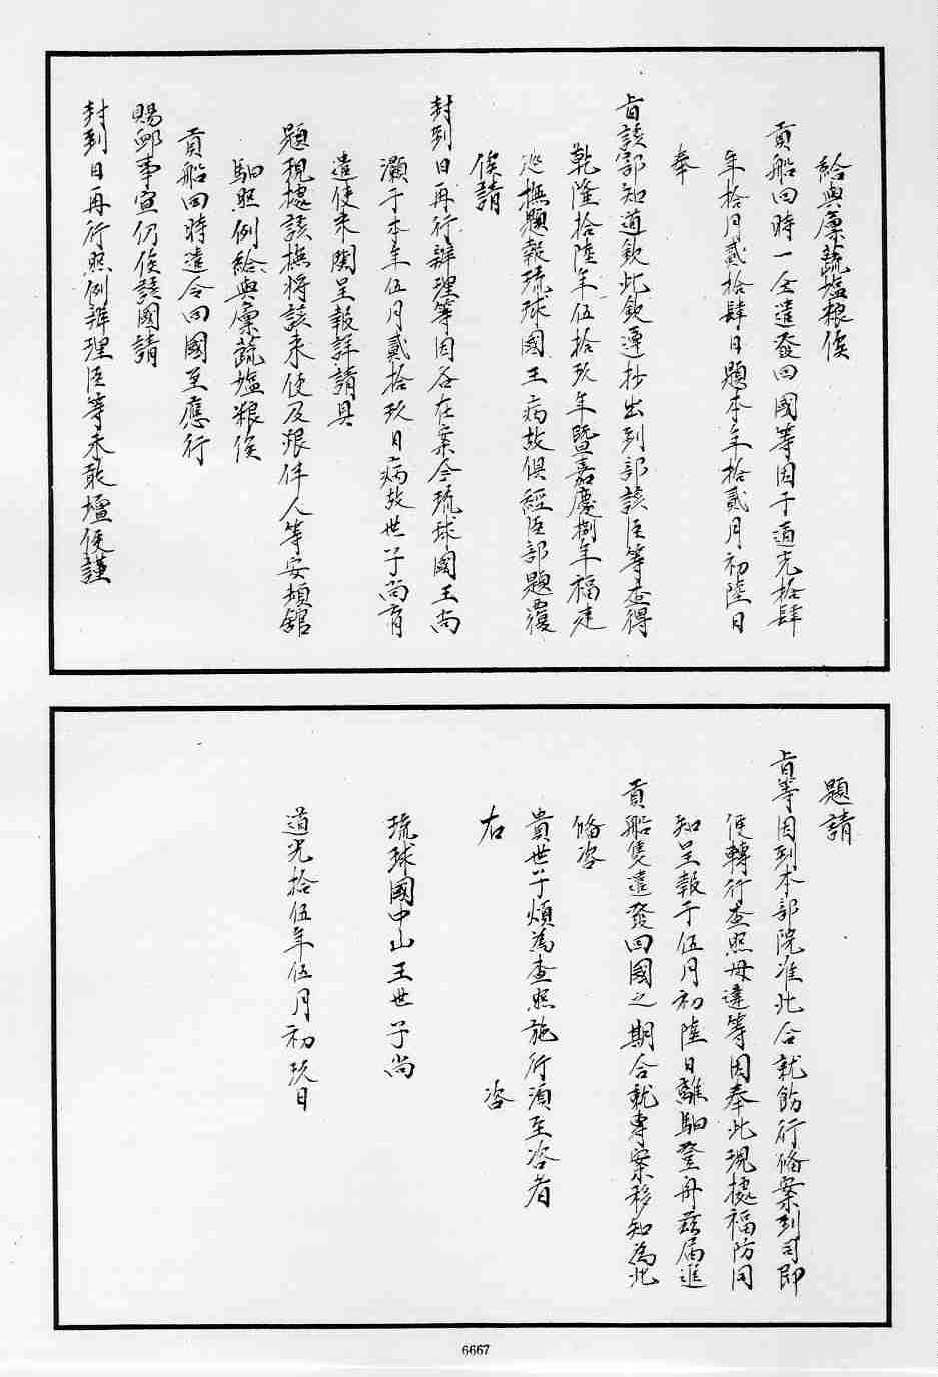 給與廩蔬塩粮俟
貢船回時一仝遣發回國等因于道光拾肆
年拾月貳拾肆日題本年拾貳月初陸日
奉
旨該部知道欽此欽遵抄出到部該臣等查得
乾隆拾陸年伍拾玖年暨嘉慶捌年福建
巡撫題報琉球國王病故俱經臣部題覆
俟請
封到日再行辦理等因各在案今琉球國王尚
灝于本年伍月貳拾玖日病故世子尚育
遣使來閩呈報詳請具
題現據該撫將該來使及跟伴人等安頓舘
馹照例給與廩蔬塩粮俟
貢船回時遣令回國至應行
賜卹事宜仍俟該國請
封到日再行照例辦理臣等未敢擅便謹
題請
旨等因到本部院准此合就飭行俻案到司即
便轉行查照毋違等因奉此現據福防同
知呈報于伍月初陸日離馹登舟茲届進
貢船隻遣發回國之期合就專案移知為此
俻咨
貴世子煩為查照施行須至咨者
右 咨
琉球國中山王世子尚
道光拾伍年伍月初玖日
6667